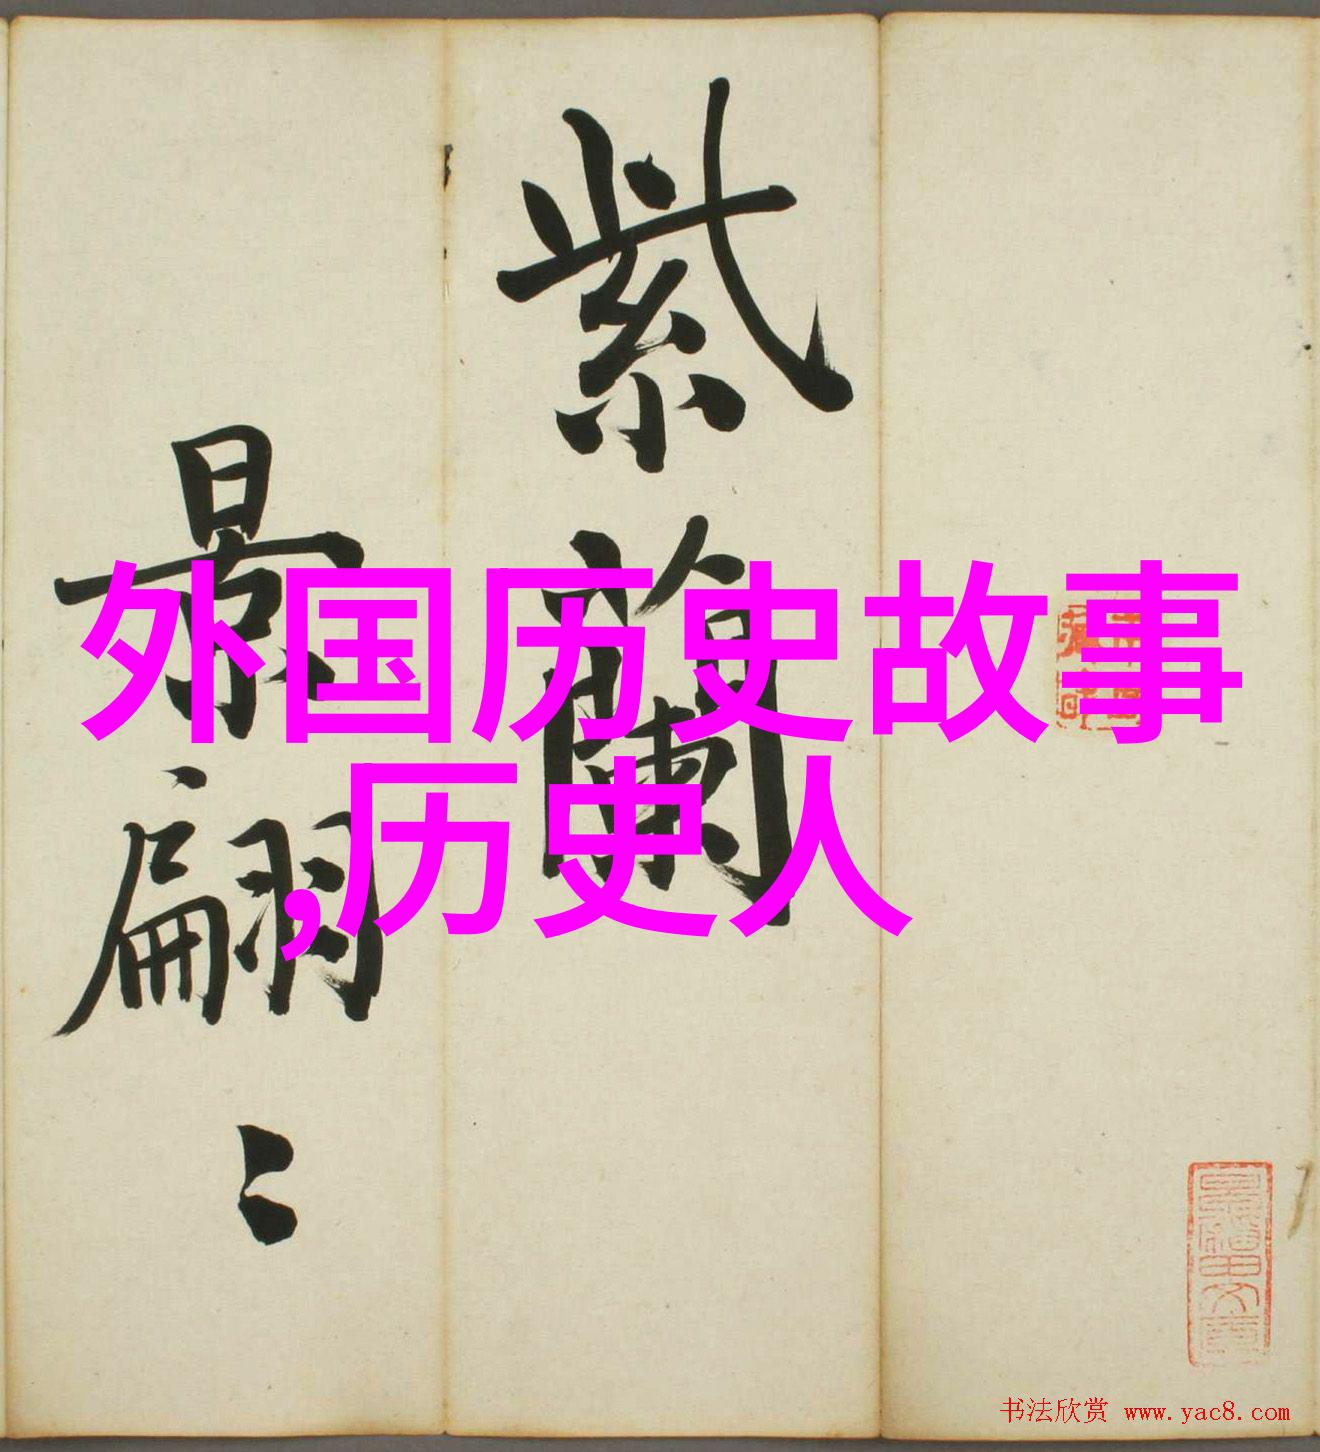 紫蘭
景翩〻
外国历史故事
,历史人
书法欣赏 www.yac8.com